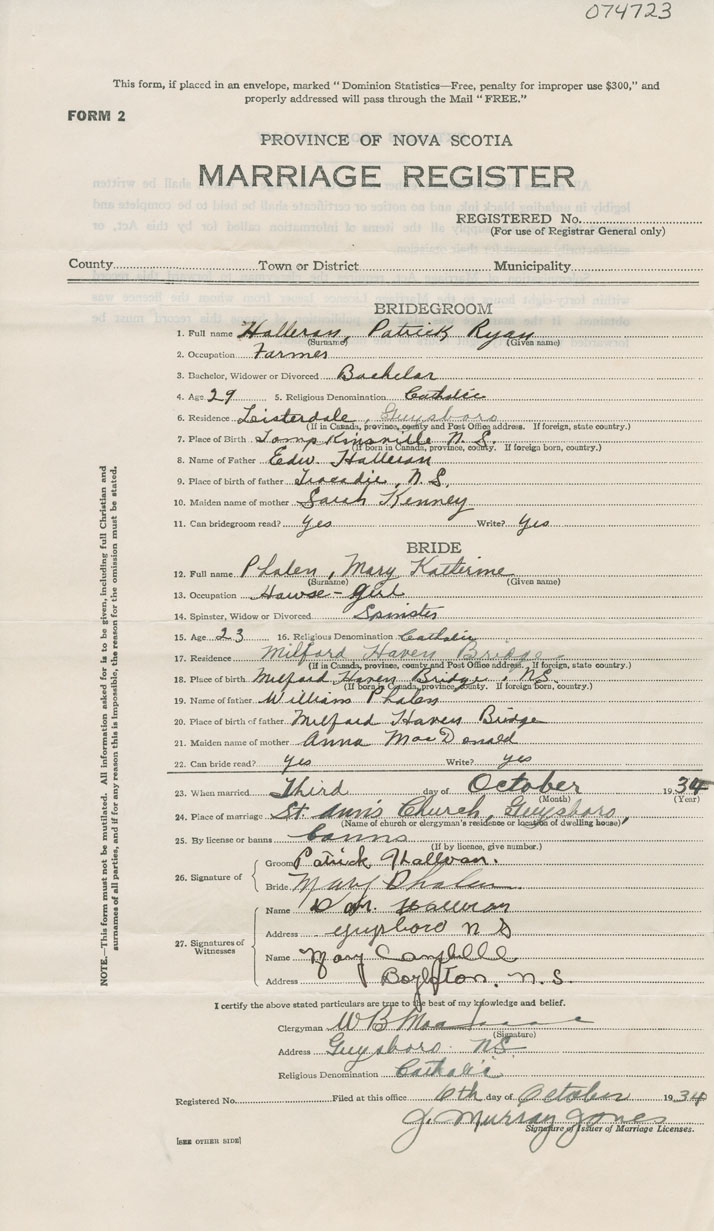 074723
This form, if placed in an envelope, marked "Dominion Statistics—Free, penalty for improper use $300," and
properly addressed will pass through the Mail "FREE."
FORM 2
PROVINCE OF NOVA SCOTIA
MARRIAGE REGISTER
REGISTERED No.
(For use of Registrar General only)
County Town or District Municipality
BRIDEGROOM
1. Full name Halleran, Patrick Ryan
(Surname) (Given name)
2. Occupation Farmer
3. Bachelor, Widower or Divorced Bachelor
4. Age 29 5. Religious Denomination Catholic
6. Residence Guysboro
(If in Canada, province, county and Post Office address. If foreign, state country.)
7. Place of Birth N.S.
(If born in Canada, province, county. If foreign born, country.)
8. Name of Father Edw. Halleran
9. Place of birth of father Tracadie, N.S.
10. Maiden name of mother Sarah Kenney
11. Can bridegroom read? Yes Write? Yes
BRIDE
12. Full name Phalen, Mary Katherine
(Surname) (Given name)
13. Occupation House-girl
14. Spinster, Widow or Divorced Spinster
15. Age 23 16. Religious Denomination Catholic
17. Residence Milford Haven Bridge
(If in Canada, province, county and Post Office address. If foreign, state country.)
18. Place of birth Milford Haven Bridge, N.S.
(If born in Canada, province, county. If foreign born, country.)
19. Name of father William Phalen
20. Place of birth of father Milford Haven Bridge
21. Maiden name of mother Anna MacDonald
22. Can bride read? Yes Write? yes
23. When married Third day of October 1934
(Month) (Year)
24. Place of marriage St. Ann's Church, Guysboro,
(Name of church or clergyman's residence or location of dwelling house)
25. By license or banns banns
(If by licence, give number.)
26. Signature of
Groom Patrick Halleran.
Bride Mary Phalen
27. Signatures of Witnesses
Name Halleran
Address Guysboro N S
Name Mary Campbell
Address Boylston, N.S.
I certify the above stated particulars are true to the best of my knowledge and belief.
Clergyman W B
(Signature)
Address Guysboro. N.S.
Religious Denomination Catholic
Registered No. Filed at this office 6th day of October 1934
J. Murray Jones
Signature of Issuer of Marriage Licenses.
[SEE OTHER SIDE]
NOTE.—This form must not be mutilated. All information asked for is to be given, including full Christian and
surnames of all parties, and if for any reason this is impossible, the reason for the omission must be stated.